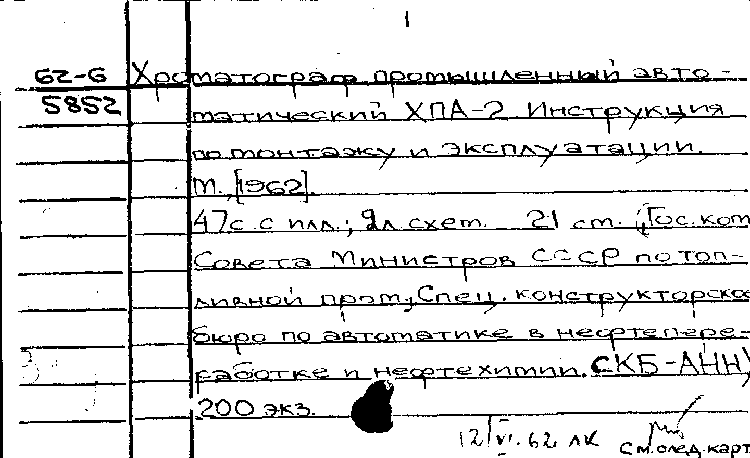 1
62-6 Хроматограф промышленный авто-
5852 матический ХПА-2 Инструкция
по монтажу и эксплуатации.
М., [1962].
47с. с илл.; 2л схем. 21 см. (Гос. ком
Совета Министров СССР по топ-
ливной пром; Спец. конструкторско
бюро по автоматике в нефтепере-
работке и нефтехимии. СКБ-АНН)
200 экз.
12/VI.62 ЛК См. след. карт